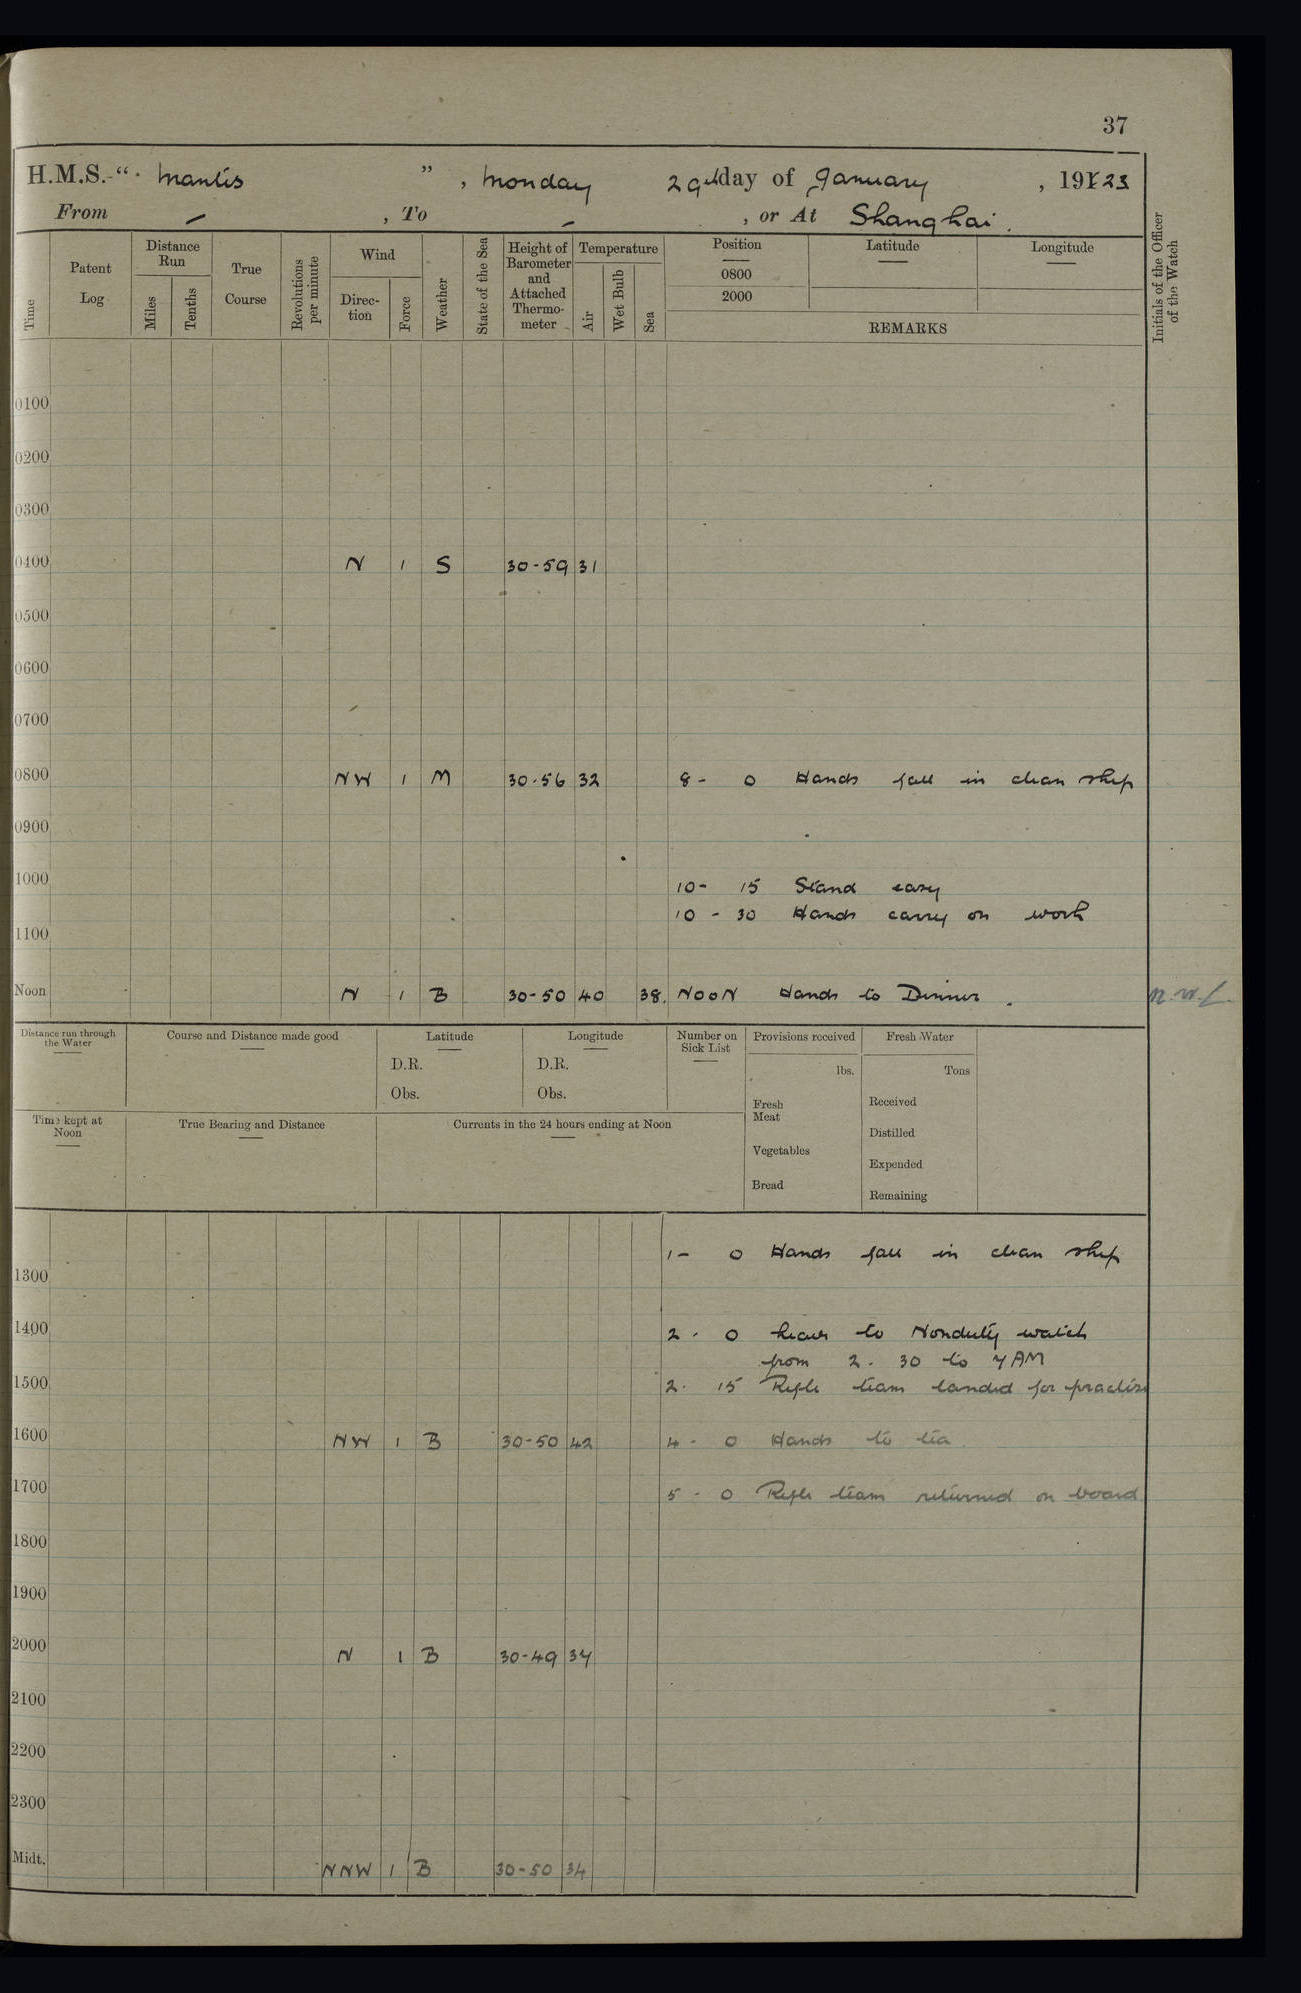 37
H.M.S. “ Mantis ”, Monday 29th day of January, 1923
From – , To – , or At Shanghai.
Time
Patent Log
Distance Run
Miles
Tenths
True Course
Revolutions per minute
Wind
Direc-tion
Force
Weather
State of the Sea
Height of Barometer and Attached Thermo-meter
Temperature
Air
Wet Bulb
Sea
Position
0800
2000
Latitude
Longitude
REMARKS
Initials of the Officer of the Watch
0100
0200
0300
0400 N 1 S 30-59 31
0500
0600
0700
0800 NW 1 M 30-56 32 8- 0 Hands fall in clean ship
0900
1000
10- 15 Stand easy
10 - 30 Hands carry on work
1100
Noon N 1 B 30-50 40 38. NOON Hands to Dinner .
Distance run through the Water
Course and Distance made good
Latitude
D.R.
Obs.
Longitude
D.R.
Obs.
Number on Sick List
Provisions received
lbs.
Fresh Meat
Vegetables
Bread
Fresh Water
Tons
Received
Distilled
Expended
Remaining
Time kept at Noon
True Bearing and Distance
Currents in the 24 hours ending at Noon
1- 0 Hands fall in clean ship
1300
1400 2 - 0 Leave to Nonduty watch
from 2. 30 to 7 AM
1500 2. 15 Rifle team landed for practise
1600 NW 1 B 30-50 42 4- 0 Hands to tea
1700 5 - 0 Rifle team returned on board
1800
1900
2000 N 1 B 30-49 37
2100
2200
2300
Midt. NNW 1 B 30-50 34